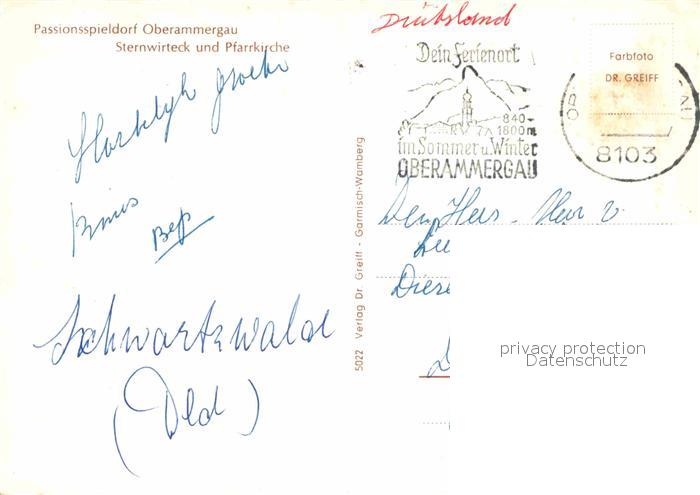 Passionsspieldorf Oberammergau
Sternwirteck und Pfarrkirche
Hartelijk groeten
Bep
Schwartzwald
(Dld)
5022 Verlag Dr. Greiff - Garmisch-Wamberg
Duitsland
Dein Ferienort
840-
1800m
im Sommer u. Winter
OBERAMMERGAU
8103
Farbfoto
DR. GREIFF
Den Heer
privacy protection
Datenschutz